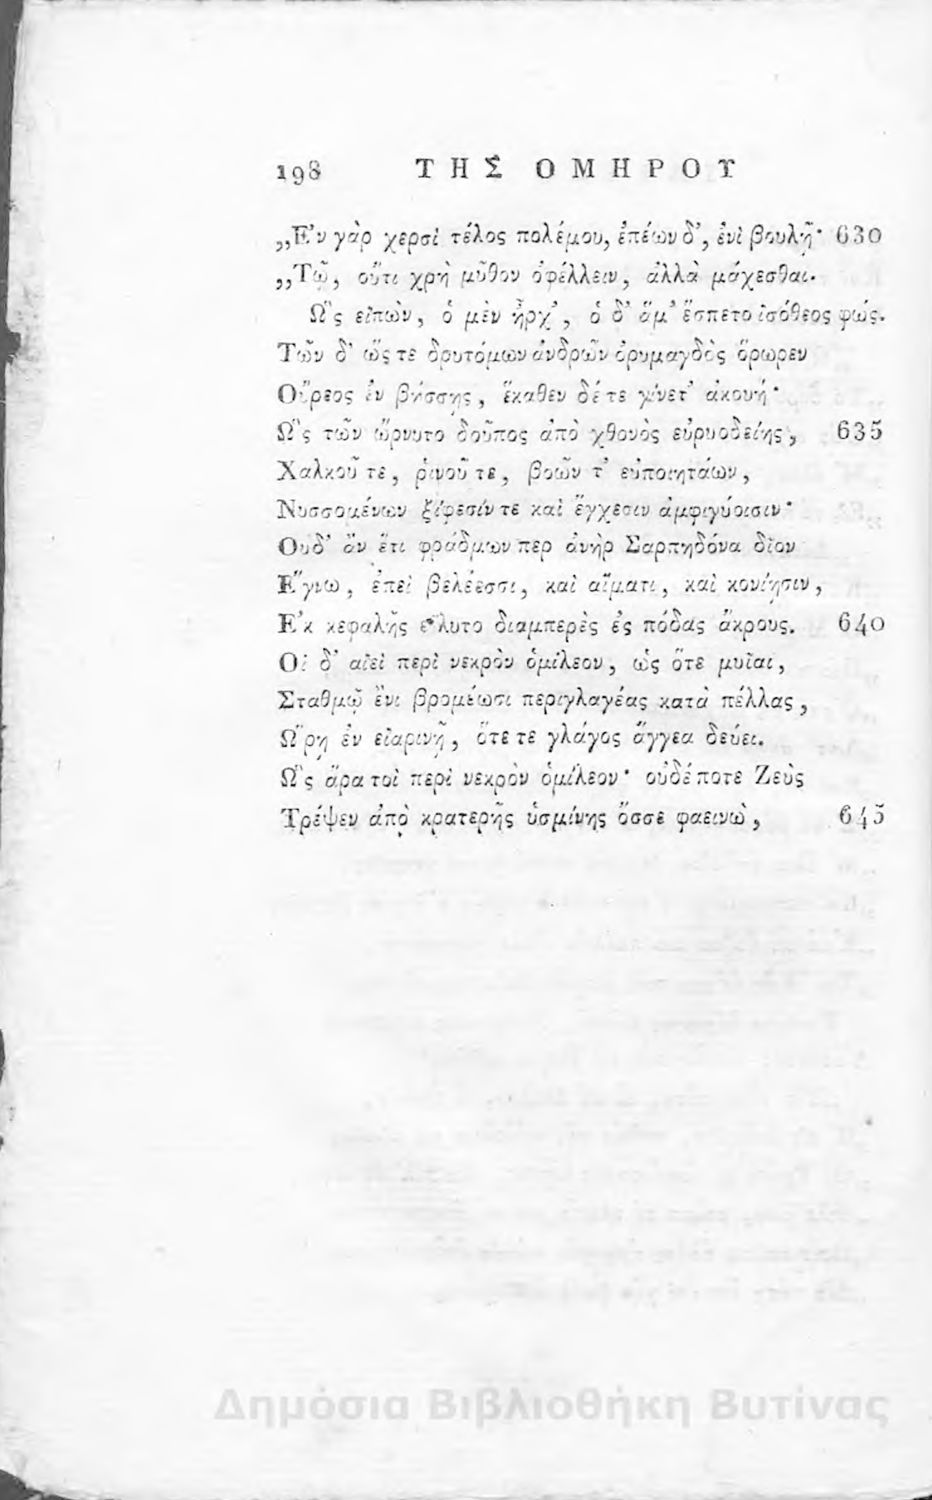 198 ΤΗΣ ΟΜΗΡΟΥ
„Ἐν γὰρ χερσὶ τέλος πολέμου, ἐπέων δ', ἐνὶ βουλῇ· 630
„Τῷ, οὔτι χρὴ μῦθον ὀφέλλειν, ἀλλὰ μάχεσθαι.
Ὣς εἰπὼν, ὁ μὲν ἦρχ', ὁ δ' ἅμ' ἕσπετο ἰσόθεος φώς.
Τῶν δ' ὥς τε δρυτόμων ἀνδρῶν ὀρυμαγδὸς ὄρωρεν
Οὔρεος ἐν βήσσῃς, ἕκαθεν δέ τε γίνετ' ἀκουή·
Ὣς τῶν ὤρνυτο δοῦπος ἀπὸ χθονὸς εὐρυοδείης, 635
Χαλκοῦ τε, ῥινοῦ τε, βοῶν τ' εὐποιητάων,
Νυσσομένων ξίφεσίν τε καὶ ἔγχεσιν ἀμφιγύοισιν·
Οὐδ' ἂν ἔτι φράδμων περ ἀνὴρ Σαρπηδόνα δῖον
Ἔγνω, ἐπεὶ βελέεσσι, καὶ αἵματι, καὶ κονίῃσιν,
Ἐκ κεφαλῆς εἴλυτο διαμπερὲς ἐς πόδας ἄκρους. 640
Οἱ δ' αἰεὶ περὶ νεκρὸν ὁμίλεον, ὡς ὅτε μυῖαι,
Σταθμῷ ἔνι βρομέωσι περιγλαγέας κατὰ πέλλας,
Ὥρῃ ἐν εἰαρινῇ, ὅτε τε γλάγος ἄγγεα δεύει.
Ὣς ἄρα τοὶ περὶ νεκρὸν ὁμίλεον· οὐδέ ποτε Ζεὺς
Τρέψεν ἀπὸ κρατερῆς ὑσμίνης ὄσσε φαεινὼ, 645
Δημόσια Βιβλιοθήκη Βυτίνας